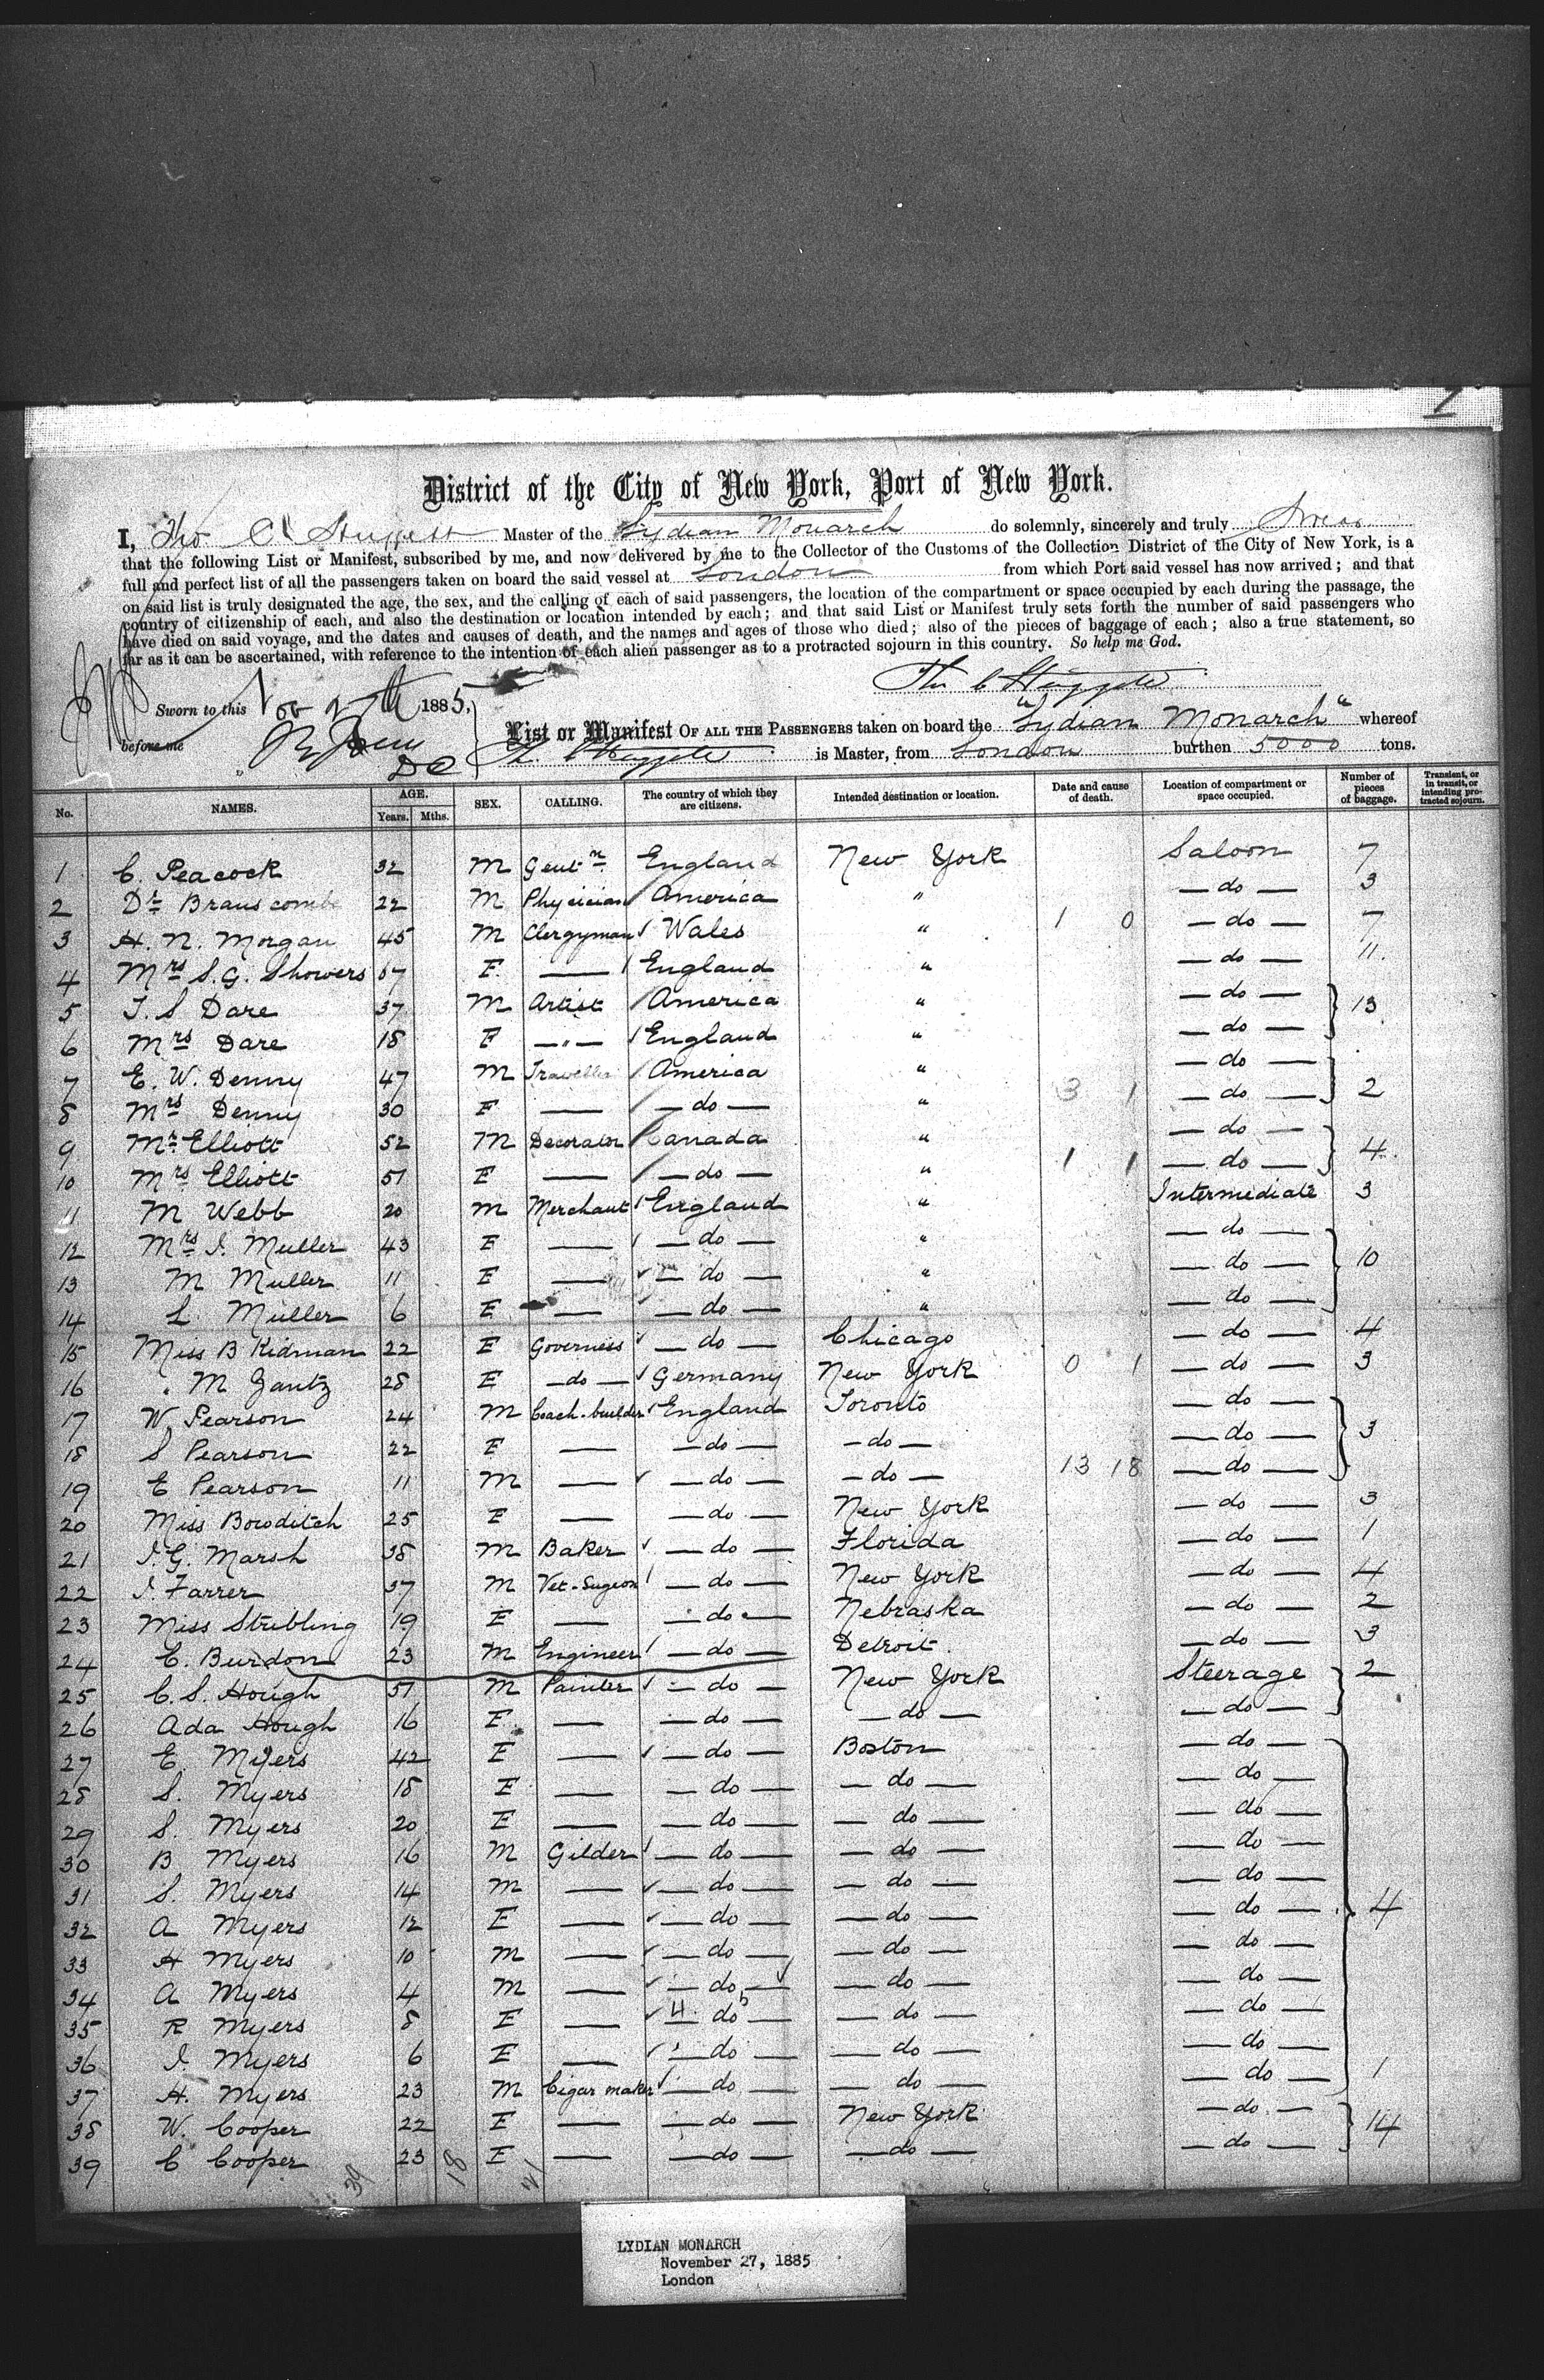 1
District of the City of New York, Port of New York.
I, Tho C Huggett Master of the Lydian Monarch do solemnly, sincerely and truly Swear
that the following List or Manifest, subscribed by me, and now delivered by me to the Collector of the Customs of the Collection District of the City of New York, is a
full and perfect list of all the passengers taken on board the said vessel at London from which Port said vessel has now arrived; and that
on said list is truly designated the age, the sex, and the calling of each of said passengers, the location of the compartment or space occupied by each during the passage, the
country of citizenship of each, and also the destination or location intended by each; and that said List or Manifest truly sets forth the number of said passengers who
have died on said voyage, and the dates and causes of death, and the names and ages of those who died; also of the pieces of baggage of each; also a true statement, so
far as it can be ascertained, with reference to the intention of each alien passenger as to a protracted sojourn in this country. So help me God.
Tho C Huggett
Sworn to this Nov 27th 1885,
before me
DC
List or Manifest OF ALL THE PASSENGERS taken on board the "Lydian Monarch" whereof
Th. C Huggett is Master, from London burthen 5000 tons.
No. NAMES. AGE. Years. Mths. SEX. CALLING. The country of which they are citizens. Intended destination or location. Date and cause of death. Location of compartment or space occupied. Number of pieces of baggage. Transient, or in transit, or intending protracted sojourn.
1 C. Peacock 32 M Gentn England New York Saloon 7
2 Dr Branscombe 22 M Physician America " — do — 3
3 H. N. Morgan 45 M Clergyman Wales " 1 0 — do — 7
4 Mrs S. G. Showers 67 F — England " — do — 11.
5 T. S Dare 37 M Artist America " — do — 13
6 Mrs Dare 18 F — " — England " — do —
7 E. W. Denny 47 M Traveller America " — do —
8 Mrs Denny 30 F — — do — " 3 1 — do — 2
9 Mr Elliott 52 M Decorator Canada " — do —
10 Mrs Elliott 51 F — — do — " 1 1 — do — 4.
11 M Webb 20 M Merchant England " Intermediate 3
12 Mrs I. Muller 43 F — — do — " — do —
13 M Muller 11 F — — do — " — do — 10
14 L. Muller 6 F — — do — " — do —
15 Miss B Kidman 22 F Governess — do — Chicago — do — 4
16 " M Zantz 28 F — do — Germany New York 0 1 — do — 3
17 W. Pearson 24 M Coach-builder England Toronto — do —
18 S Pearson 22 F — — do — — do — — do — 3
19 E Pearson 11 M — — do — — do — 13 18 — do —
20 Miss Bowditch 25 F — — do — New York — do — 3
21 I. G. Marsh 38 M Baker — do — Florida — do — 1
22 I. Farrer 37 M Vet-Sugeon — do — New York — do — 4
23 Miss Stribling 19 F — — do — Nebraska — do — 2
24 E. Burdon 23 M Engineer — do — Detroit. — do — 3
25 C. S. Hough 51 M Painter — do — New York Steerage 2
26 Ada Hough 16 F — — do — — do — — do —
27 E. Myers 42 F — — do — Boston — do —
28 S. Myers 18 F — — do — — do — — do —
29 S. Myers 20 F — — do — — do — — do —
30 B Myers 16 M Gilder — do — — do — — do —
31 S. Myers 14 M — — do — — do — — do —
32 A Myers 12 F — — do — — do — — do — 4
33 H Myers 10 M — — do — — do — — do —
34 A Myers 4 M — — do — — do — — do —
35 R Myers 8 F — — do — — do — — do —
36 I. Myers 6 F — — do — — do — — do —
37 H. Myers 23 M Cigar maker — do — — do — — do — 1
38 W. Cooper 22 F — — do — New York — do — 14
39 C Cooper 23 F — — do — — do — — do —
39 18 21
LYDIAN MONARCH
November 27, 1885
London